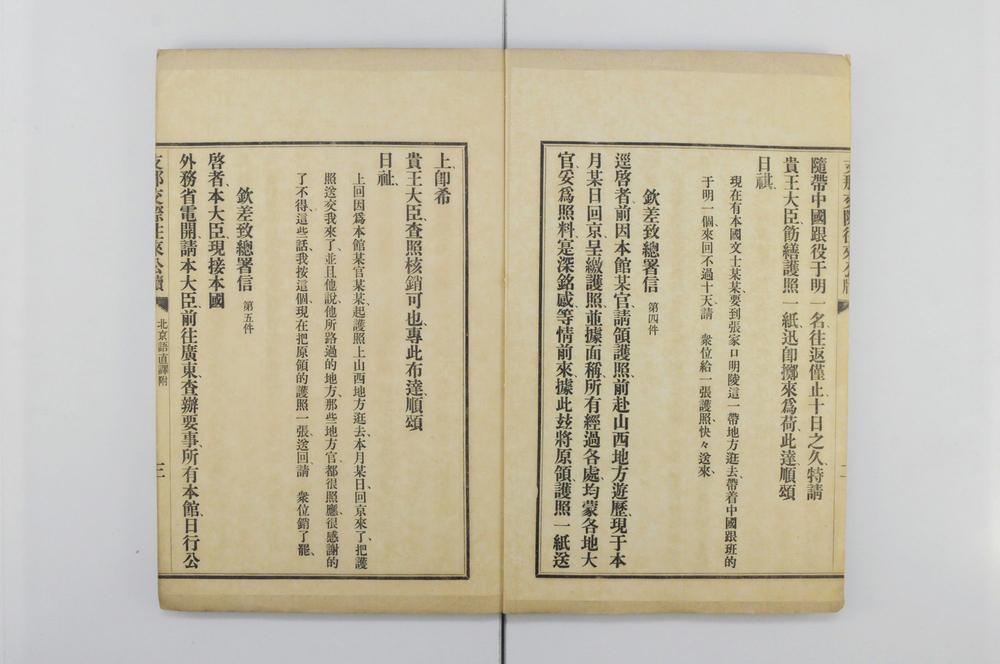 隨帶中國跟役于明一名、往返僅止十日之久、特請
貴王大臣、飭繕護照一紙、迅卽擲來爲荷、此達、順頌
日祺、
現在有本國文士某某、要到張家口明陵這一帶地方逛去、帶着中國跟班的
于明一個、來回不過十天、請　衆位給一張護照、快々送來、
欽差致總署信　第四件
逕啓者、前因本館某官、請領護照、前赴山西地方遊歷、現于本
月某日回京、呈繳護照、並據面稱、所有經過各處、均蒙各地大
官妥爲照料、寔深銘感等情前來、據此玆將原領護照一紙送
上、卽希
貴王大臣、查照核銷可也、專此布達、順頌
日祉、
上回因爲本館某官某某、起護照上山西地方逛去、本月某日、回京來了、把護
照送交我來了、並且他說他所路過的地方、那些地方官都很照應、很感謝的
了不得、這些話我按這個、現在把原領的護照一張送回、請　衆位銷了罷、
欽差致總署信　第五件
啓者、本大臣、現接本國
外務省電開、請本大臣、前往廣東、查辦要事、所有本館、日行公
支那交際往來公牘
北京語直譯附
三